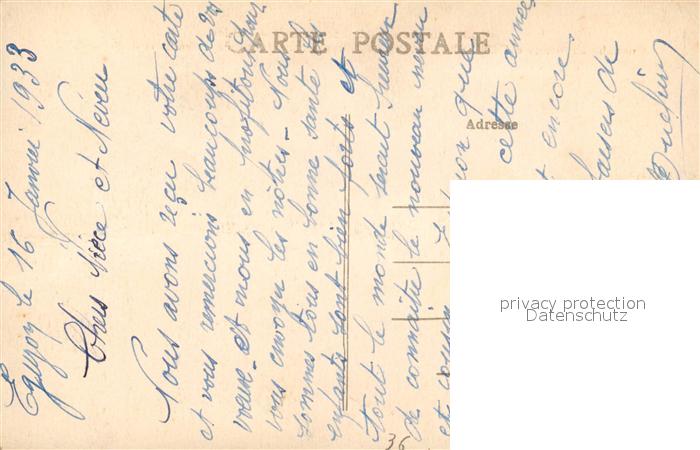 CARTE POSTALE
Adresse
le 16 Janvier 1933
Chers Nièce et Neveu
Nous avons reçu votre carte
et vous remercions beaucoup de vos
voeux et nous en profitons pour
vous envoyer les nôtres - Nous
sommes tous en bonne santé les
enfants sont bien forts et
tout le monde serait heureux
de connaître le nouveau neveu
et cousin que
cette année
et encore
baisers de
36
privacy protection
Datenschutz